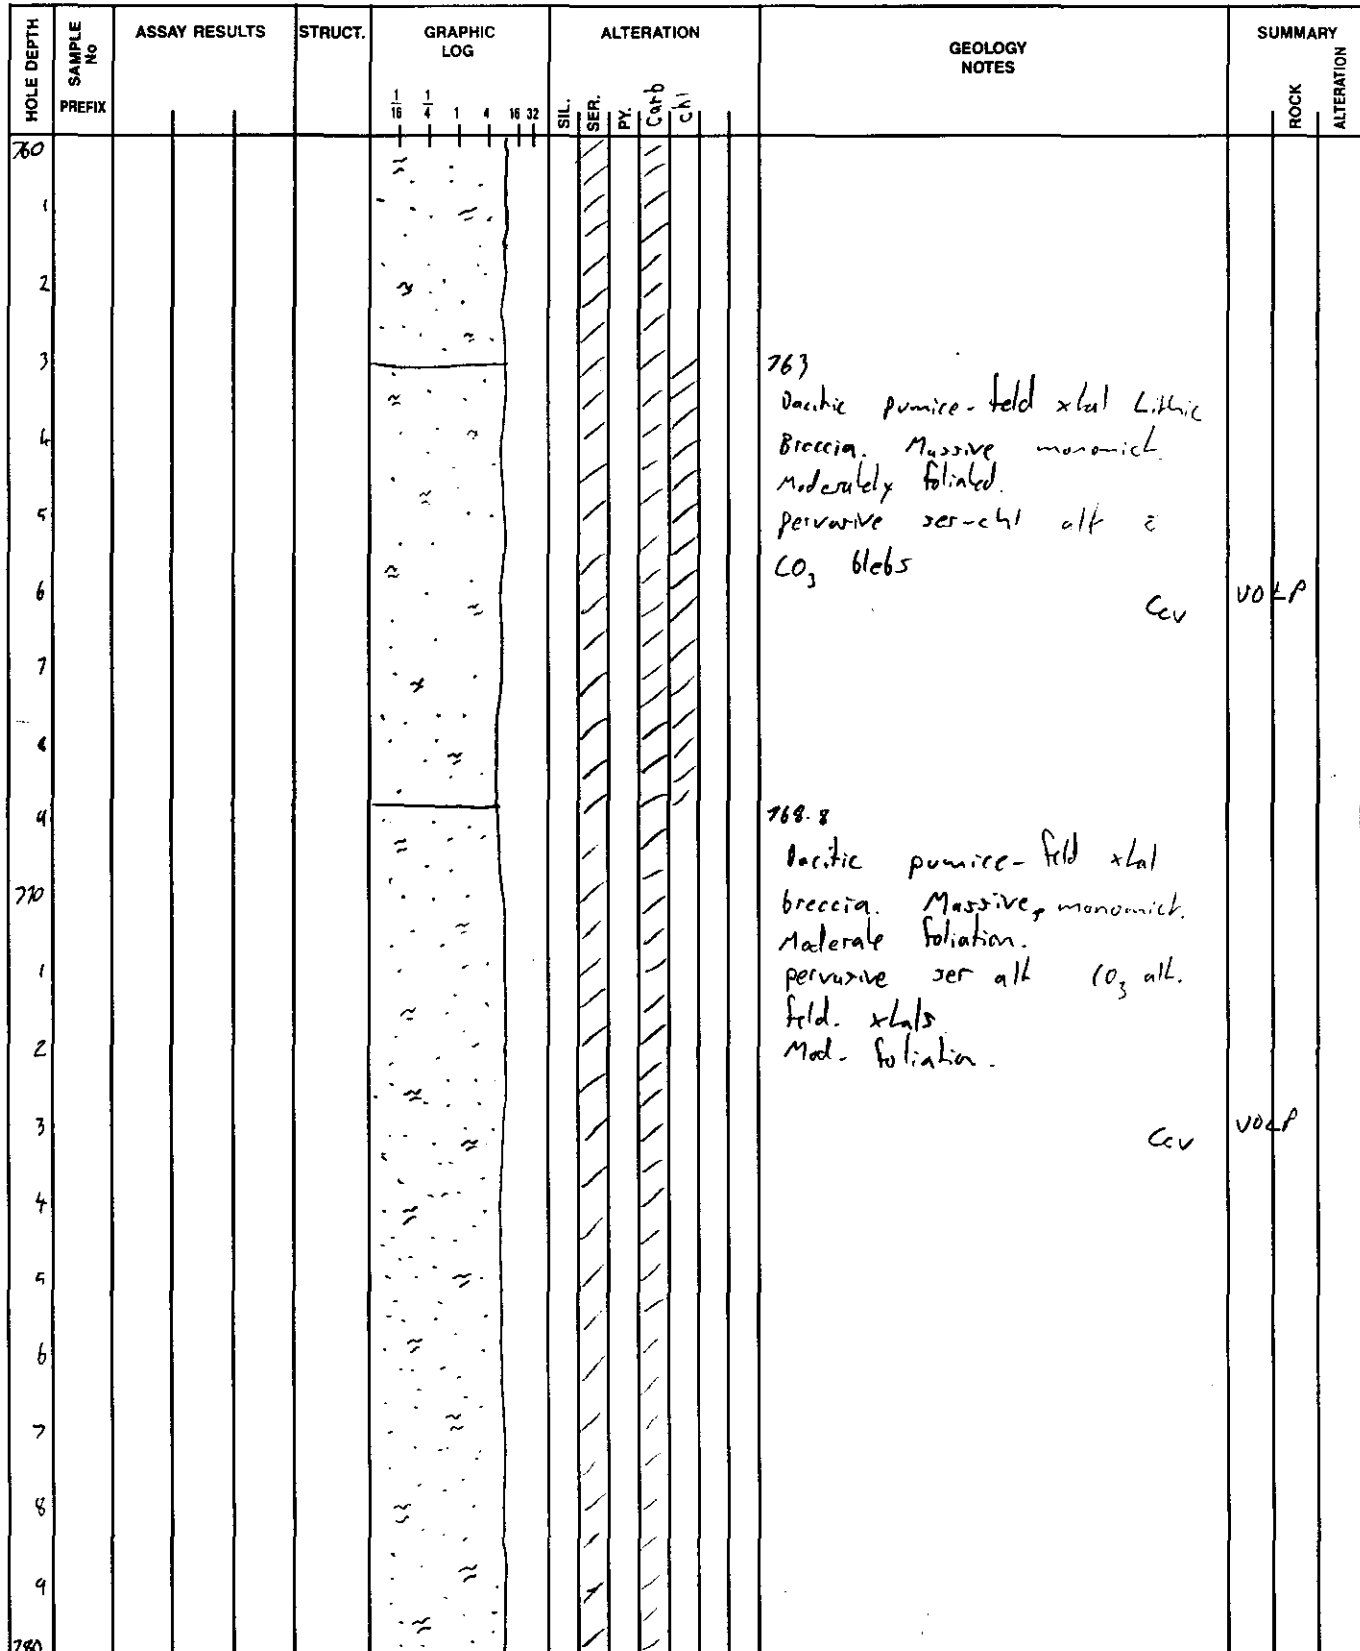 HOLE DEPTH
SAMPLE No
PREFIX
ASSAY RESULTS
STRUCT.
GRAPHIC
LOG
1/16 1/4 1 4 16 32
ALTERATION
SIL.
SER.
PY.
Carb
Chl
GEOLOGY
NOTES
SUMMARY
ROCK
ALTERATION
760
1
2
3
763
Dacitic pumice-feld xtal Lithic
4
Breccia. Massive monomict.
Moderately foliated.
5
pervasive ser-chl alt c̄
CO3 blebs
6
Ccv
VOLP
7
9
768.8
Dacitic pumice-feld xtal
770
breccia. Massive, monomict.
Moderate foliation.
1
pervasive ser alt CO3 alt.
feld. xtals
2
Mod. foliation.
3
Ccv
VOLP
4
5
6
7
8
9
780